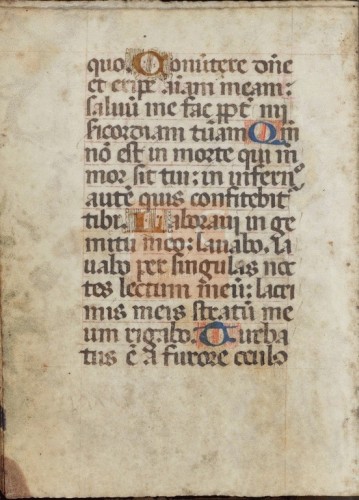 quo. Conūtere dn̄e
et eripe aīam meam:
saluū me fac ꝓpt̄ mi
sicordiam tuam Qm̄
nō est in morte qui m̄
mor sit tui: in infern̄
autē quis confitebit᷑
tibi. Laboraui in ge
mitu meo: lauabo. la
uabo per singulas noc
tes lectum meū: lacri
mis meis stratū me
um rigabo. Turba
tus ē a furore oculꝰ